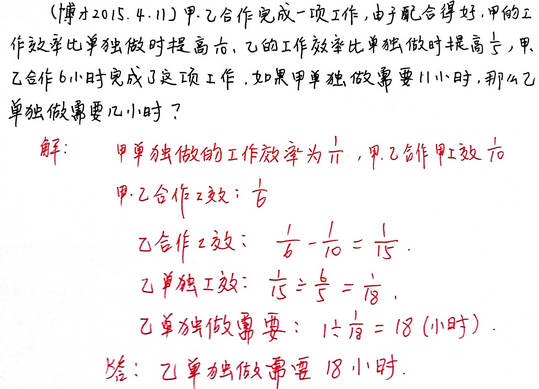 (博才2015.4.11)甲.乙合作完成一项工作,由于配合得好,甲的工
作效率比单独做时提高1/10,乙的工作效率比单独做时提高1/5,甲.
乙合作6小时完成了这项工作.如果甲单独做需要11小时,那么乙
单独做需要几小时?
解: 甲单独做的工作效率为1/11,甲.乙合作甲工效1/10
甲.乙合作工效:1/6
乙合作工效: 1/6-1/10=1/15.
乙单独工效: 1/15÷6/5=1/18.
乙单独做需要: 1÷1/18=18(小时).
答: 乙单独做需要18小时.